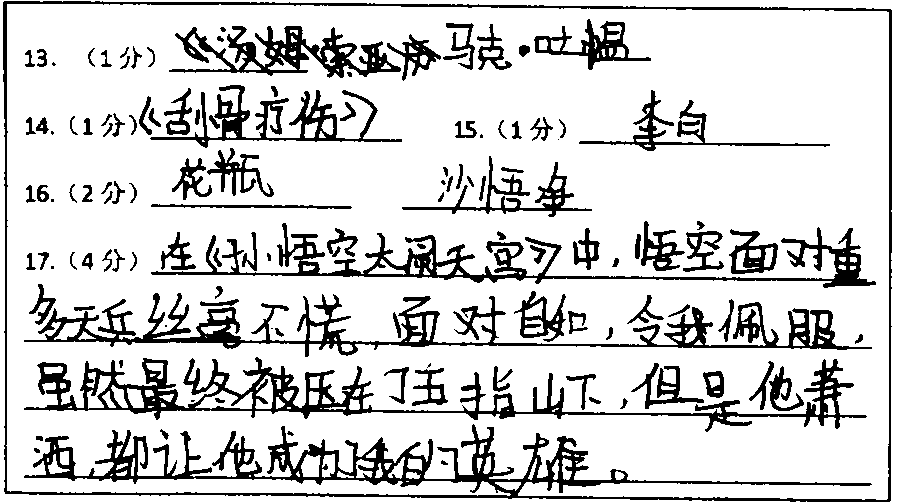 13. （1分）马克·吐温
14.（1分）《刮骨疗伤》 15.（1分）李白
16.（2分）花瓶 沙悟净
17.（4分）在《孙悟空大闹天宫》中，悟空面对重
多天兵丝毫不慌，面对自如，令我佩服，
虽然最终被压在了五指山下，但是他萧
洒，都让他成为了我的英雄。